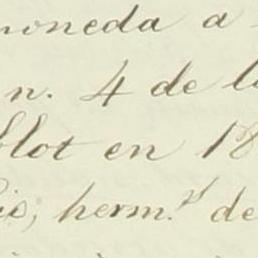 moneda a
n. 4 de l
blot en 18
io; herm.s de